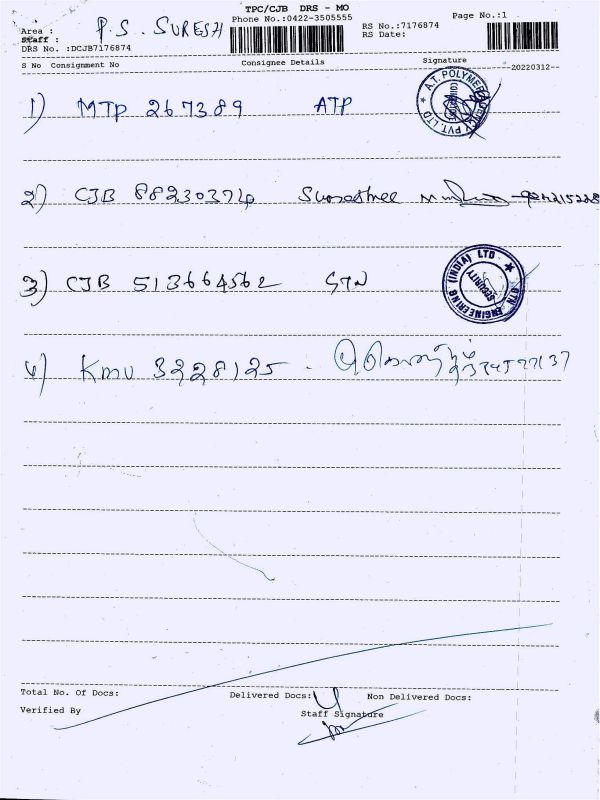 TPC/CJB DRS - MO
P.S. SURESH
Phone No.:0422-3505555
RS No.:7176874
Page No.:1
Area :
Staff :
RS Date:
DRS No. :DCJB7176874
S No Consignment No Consignee Details Signature
20220312--
1) MTP 267389 ATP
A.T. POLYMER PVT. LTD
2) CJB 882303714
3) CJB 513664562 GTN
GTN ENGINEERING (INDIA) LTD
SECURITY
4) KMU 3228125 -
Total No. Of Docs: Delivered Docs: 4 Non Delivered Docs:
Verified By
Staff Signature